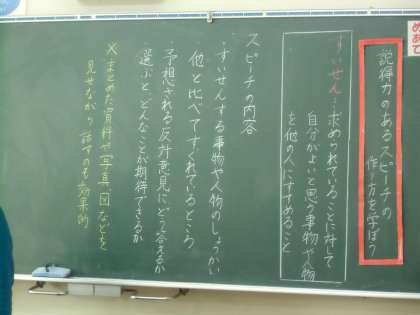 めあて
説得力のあるスピーチの
作り方を学ぼう
すいせん…求められていることに対して
自分がよいと思う事物や人物
を他の人にすすめること
スピーチの内容
・すいせんする事物や人物のしょうかい
・他と比べてすぐれているところ
・予想される反対意見にどう答えるか
・選ぶと、どんなことが期待できるか
※まとめた資料や写真、図などを
見せながら話すのも効果的